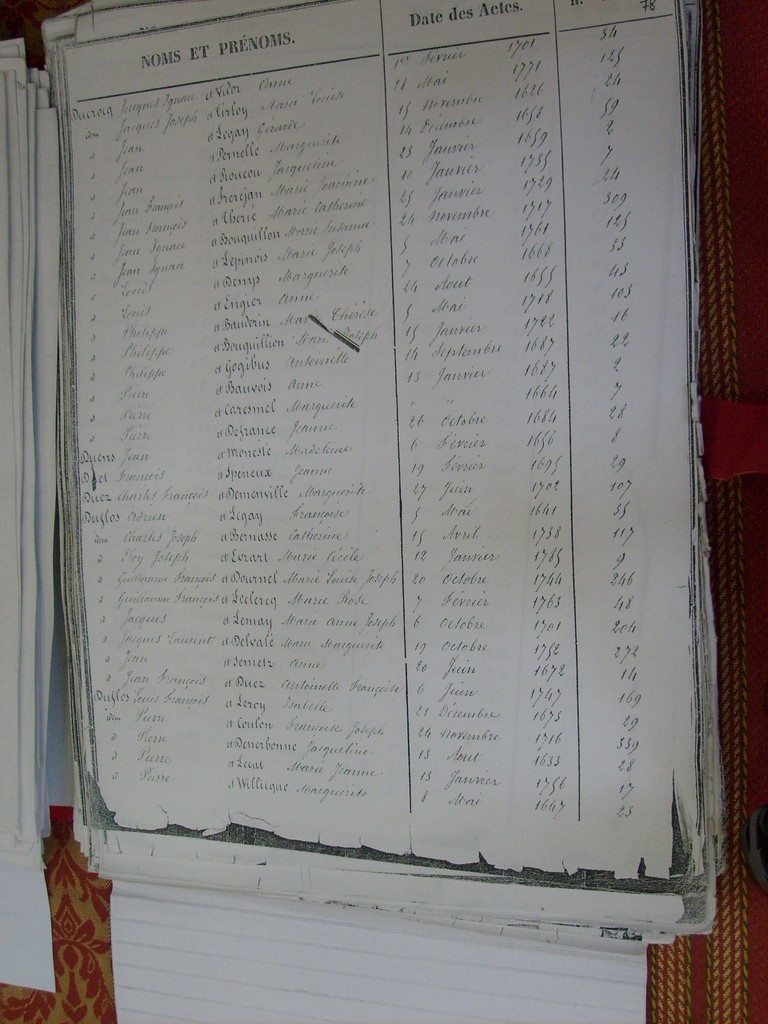 NOMS ET PRÉNOMS. Date des Actes. 78
Ducrocq Jacques Ignace et Vidor Anne 1er Février 1701 34
idem Jacques Joseph et Virloy Marie Louise 28 Mai 1771 125
d Jean et Legay Gérarde 15 Novembre 1626 24
d Jean et Pernelle Marguerite 14 Décembre 1658 59
d Jean et Roucou Jacqueline 23 Janvier 1659 2
d Jean François et Frerejan Marie Joachine 10 Janvier 1735 7
d Jean François et Théric Marie Catherine 25 Janvier 1729 24
d Jean Ignace et Bouquillon Marie Susanne 24 Novembre 1717 309
d Jean Ignace et Lepinois Marie Joseph 5 Mai 1761 125
d Louis et Denys Marguerite 7 Octobre 1668 33
d Louis et Engier Anne 24 Aout 1655 43
d Philippe et Baudrin Marie Thérèse 5 Mai 1718 103
d Philippe et Bouquillien Marie Joseph 15 Janvier 1722 16
d Philippe et Gogibus Antoinette 14 Septembre 1687 22
d Pierre et Bauvois Anne 13 Janvier 1627 2
d Pierre et Caresmel Marguerite " " 1664 7
d Pierre et Defrance Jeanne 26 Octobre 1684 28
Duens Jean et Monesle Madeleine 6 Février 1656 8
François et Speneux Jeanne 19 Février 1695 29
Duez Charles François et Demenville Marguerite 27 Juin 1702 107
Duflos Adrien et Legay Françoise 5 Mai 1641 35
idem Charles Joseph et Bernasse Catherine 15 Avril 1738 117
d Eloy Joseph et Evrart Marie Cécile 12 Janvier 1785 9
d Guillaume François et Dournel Marie Louise Joseph 20 Octobre 1744 246
d Guillaume François et Leclercq Marie Rose 7 Février 1763 48
d Jacques et Lemay Marie Anne Joseph 6 Octobre 1701 204
d Jacques Laurent et Delvalé Marie Marguerite 19 Octobre 1752 272
d Jean et Semetz Anne 20 Juin 1672 14
d Jean François et Duez Antoinette Françoise 6 Juin 1747 169
Duflos Louis François et Leroy Isabelle 21 Décembre 1673 29
idem Pierre et Coulon Françoise Joseph 24 Novembre 1716 339
d Pierre et Denerbonne Jacqueline 13 Aout 1633 28
d Pierre et Lecat Marie Jeanne 13 Janvier 1756 17
d Pierre et Willieque Marguerite 8 Mai 1647 23